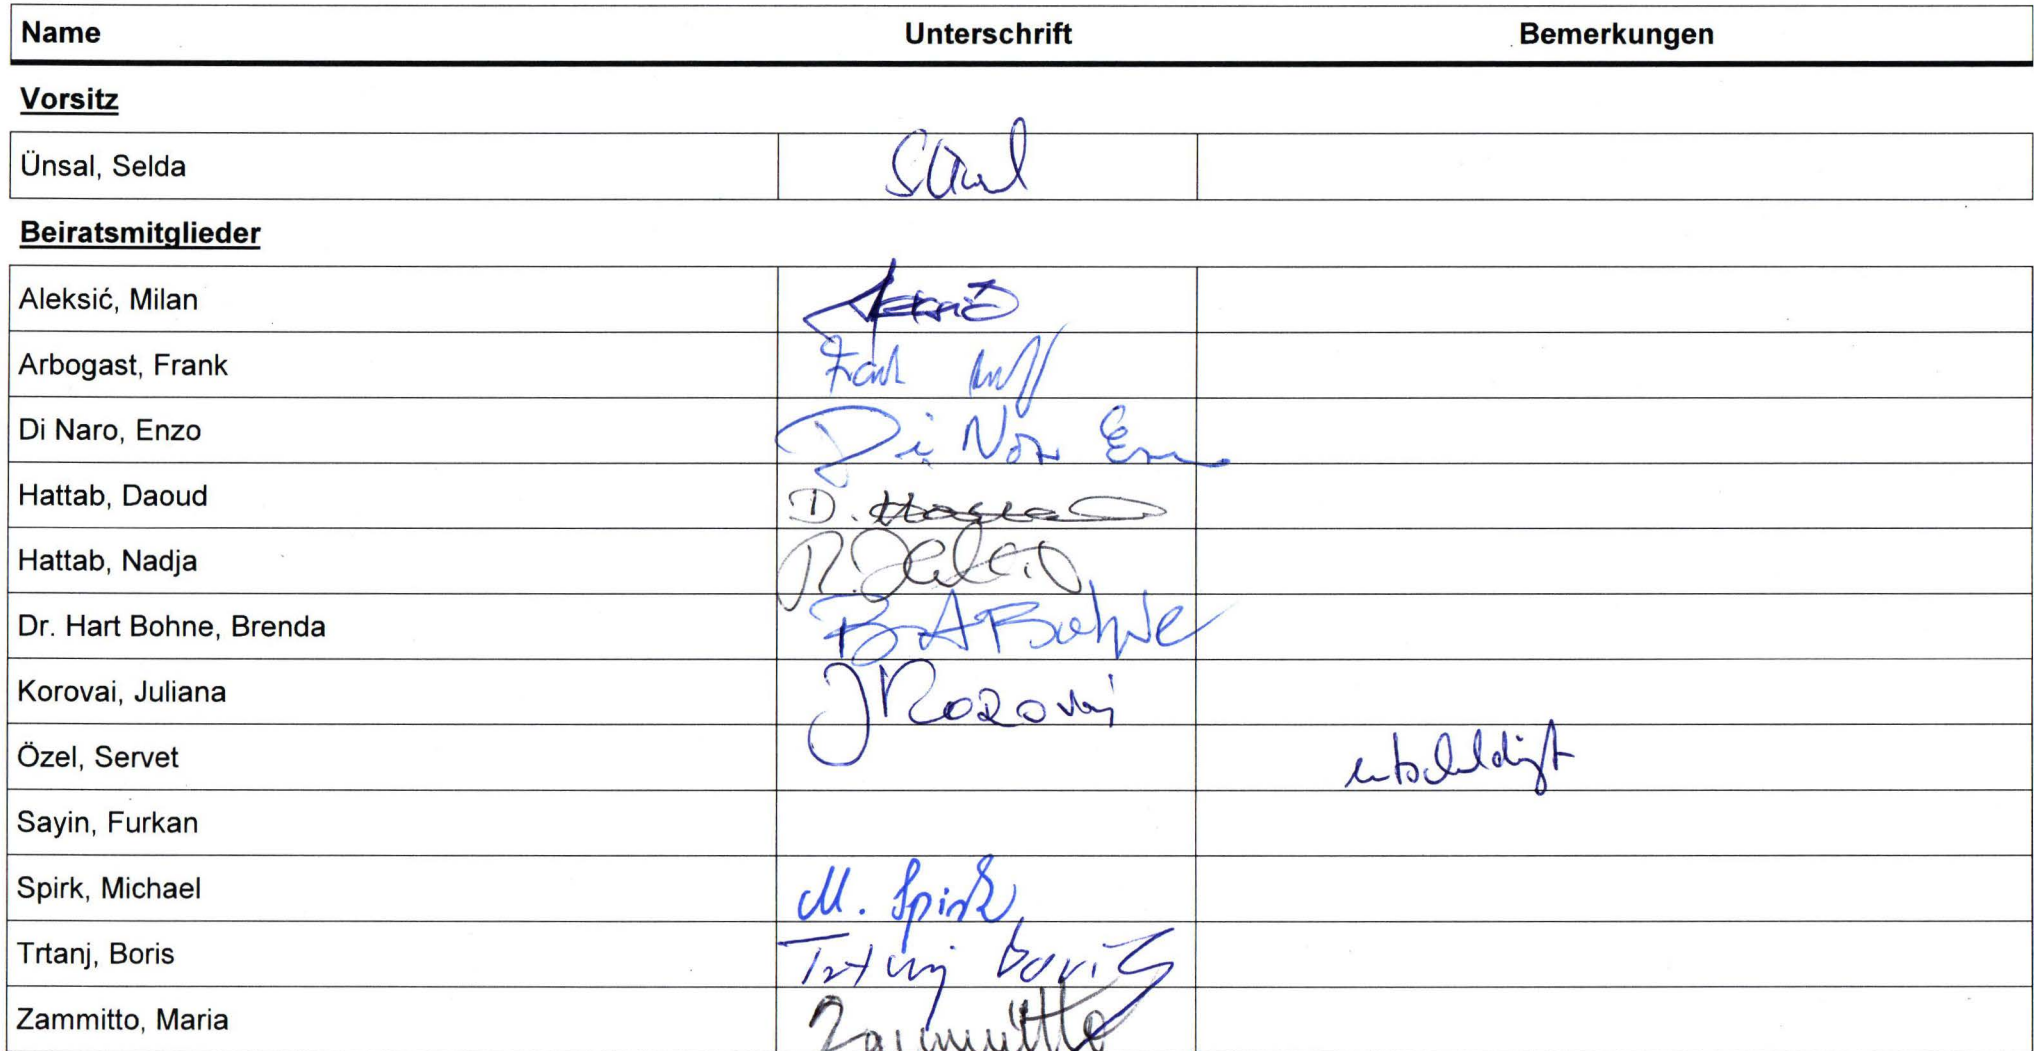 Name Unterschrift Bemerkungen
Vorsitz
Ünsal, Selda
Beiratsmitglieder
Aleksić, Milan
Arbogast, Frank
Di Naro, Enzo Di Naro Enzo
Hattab, Daoud D.
Hattab, Nadja
Dr. Hart Bohne, Brenda B A Bohne
Korovai, Juliana JKorovai
Özel, Servet entschuldigt
Sayin, Furkan
Spirk, Michael M. Spirk
Trtanj, Boris Trtanj Boris
Zammitto, Maria Zammitto